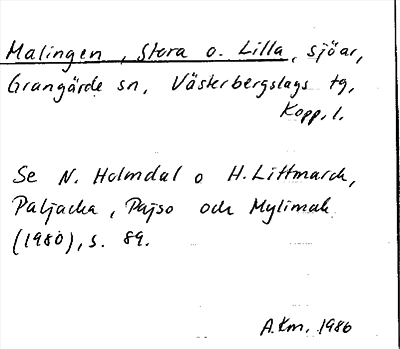 Malingen, Stora o. Lilla, sjöar,
Grangärde sn, Västerbergslags tg,
Kopp. l.
Se N. Holmdal o H. Littmarck,
Paljacka, Pajso och Mylimak
(1980), s. 89.
A.Km. 1986